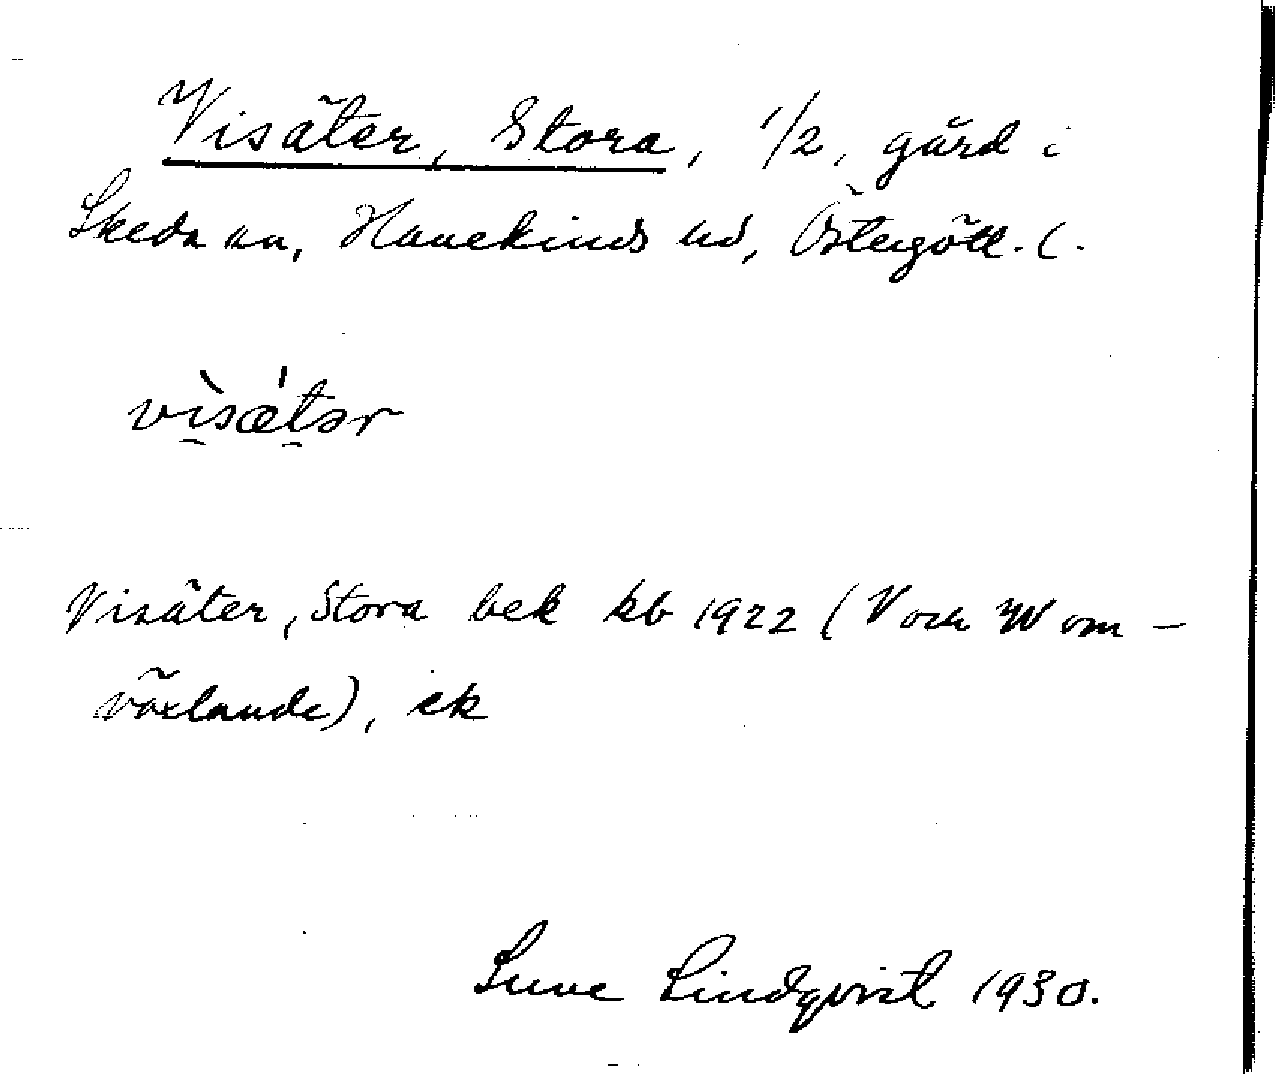 Visäter, Stora, 1/2, gård i
Skeda sn, Hanekinds hd, Östergötl. l.
vìsǽtər
Visäter, Stora bek kb 1922 (V och W om-
växlande), ek
Sune Lindqvist 1930.